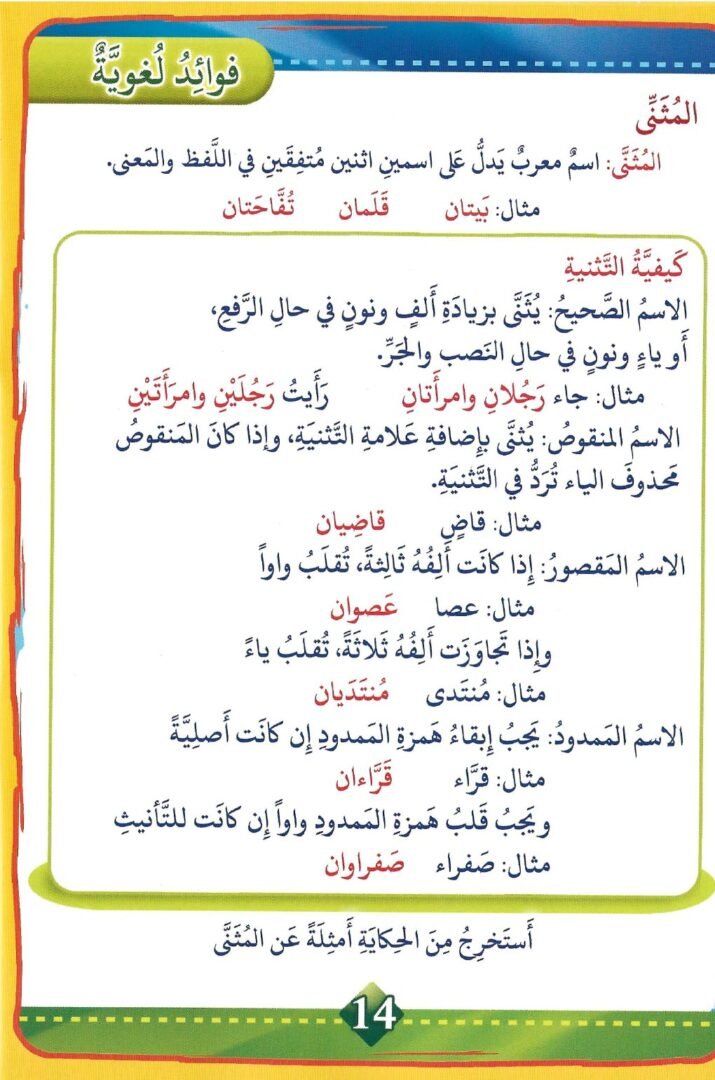 فوائِدُ لُغويَّةٌ
المُثَنِّى
المُثَنَّى: اسمٌ معربٌ يَدلُّ عَلى اسمينِ اثنين مُتفِقَينِ في اللَّفظ والمَعنى.
مثال: بَيتان قَلَمان تُفَّاحَتان
كَيفيَّةُ التَّثنيةِ
الاسمُ الصَّحيحُ: يُثَنَّى بزيادَةِ أَلفٍ ونونٍ في حالِ الرَّفعِ،
أَو ياءٍ ونونٍ في حالِ النَصب والجَرِّ.
مثال: جاء رَجُلانِ وامرأَتانِ رَأَيتُ رَجُلَيْنِ وامرَأَتَيْنِ
الاسمُ المنقوصُ: يُثنَّى بإِضافةِ عَلامةِ التَّثنيَةِ، وإذا كانَ المَنقوصُ
مَحذوفَ الياء تُرَدُّ في التَّثنيَةِ.
مثال: قاضٍ قاضِيان
الاسمُ المَقصورُ: إِذا كانَت أَلِفُهُ ثَالِثةً، تُقلَبُ واواً
مثال: عصا عَصوان
وإِذا تَجاوَزَت أَلِفُهُ ثَلاثَةً، تُقلَبُ ياءً
مثال: مُنتَدى مُنتَدَيان
الاسمُ المَمدودُ: يَجبُ إِبقاءُ هَمزةِ المَمدودِ إِن كانَت أَصلِيَّةً
مثال: قرَّاء قَرَّاءان
ويَجبُ قَلبُ هَمزةِ المَمدودِ واواً إِن كانَت للتَّأنيثِ
مثال: صَفراء صَفراوان
أَستَخرِجُ مِنَ الحِكايَةِ أَمثِلَةً عَن المُثَنَّى
14